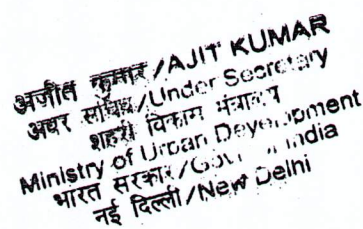 अजीत कुमार/AJIT KUMAR
अवर सचिव/Under Secretary
शहरी विकास मंत्रालय
Ministry of Urban Development
भारत सरकार/Govt. of India
नई दिल्ली/New Delhi